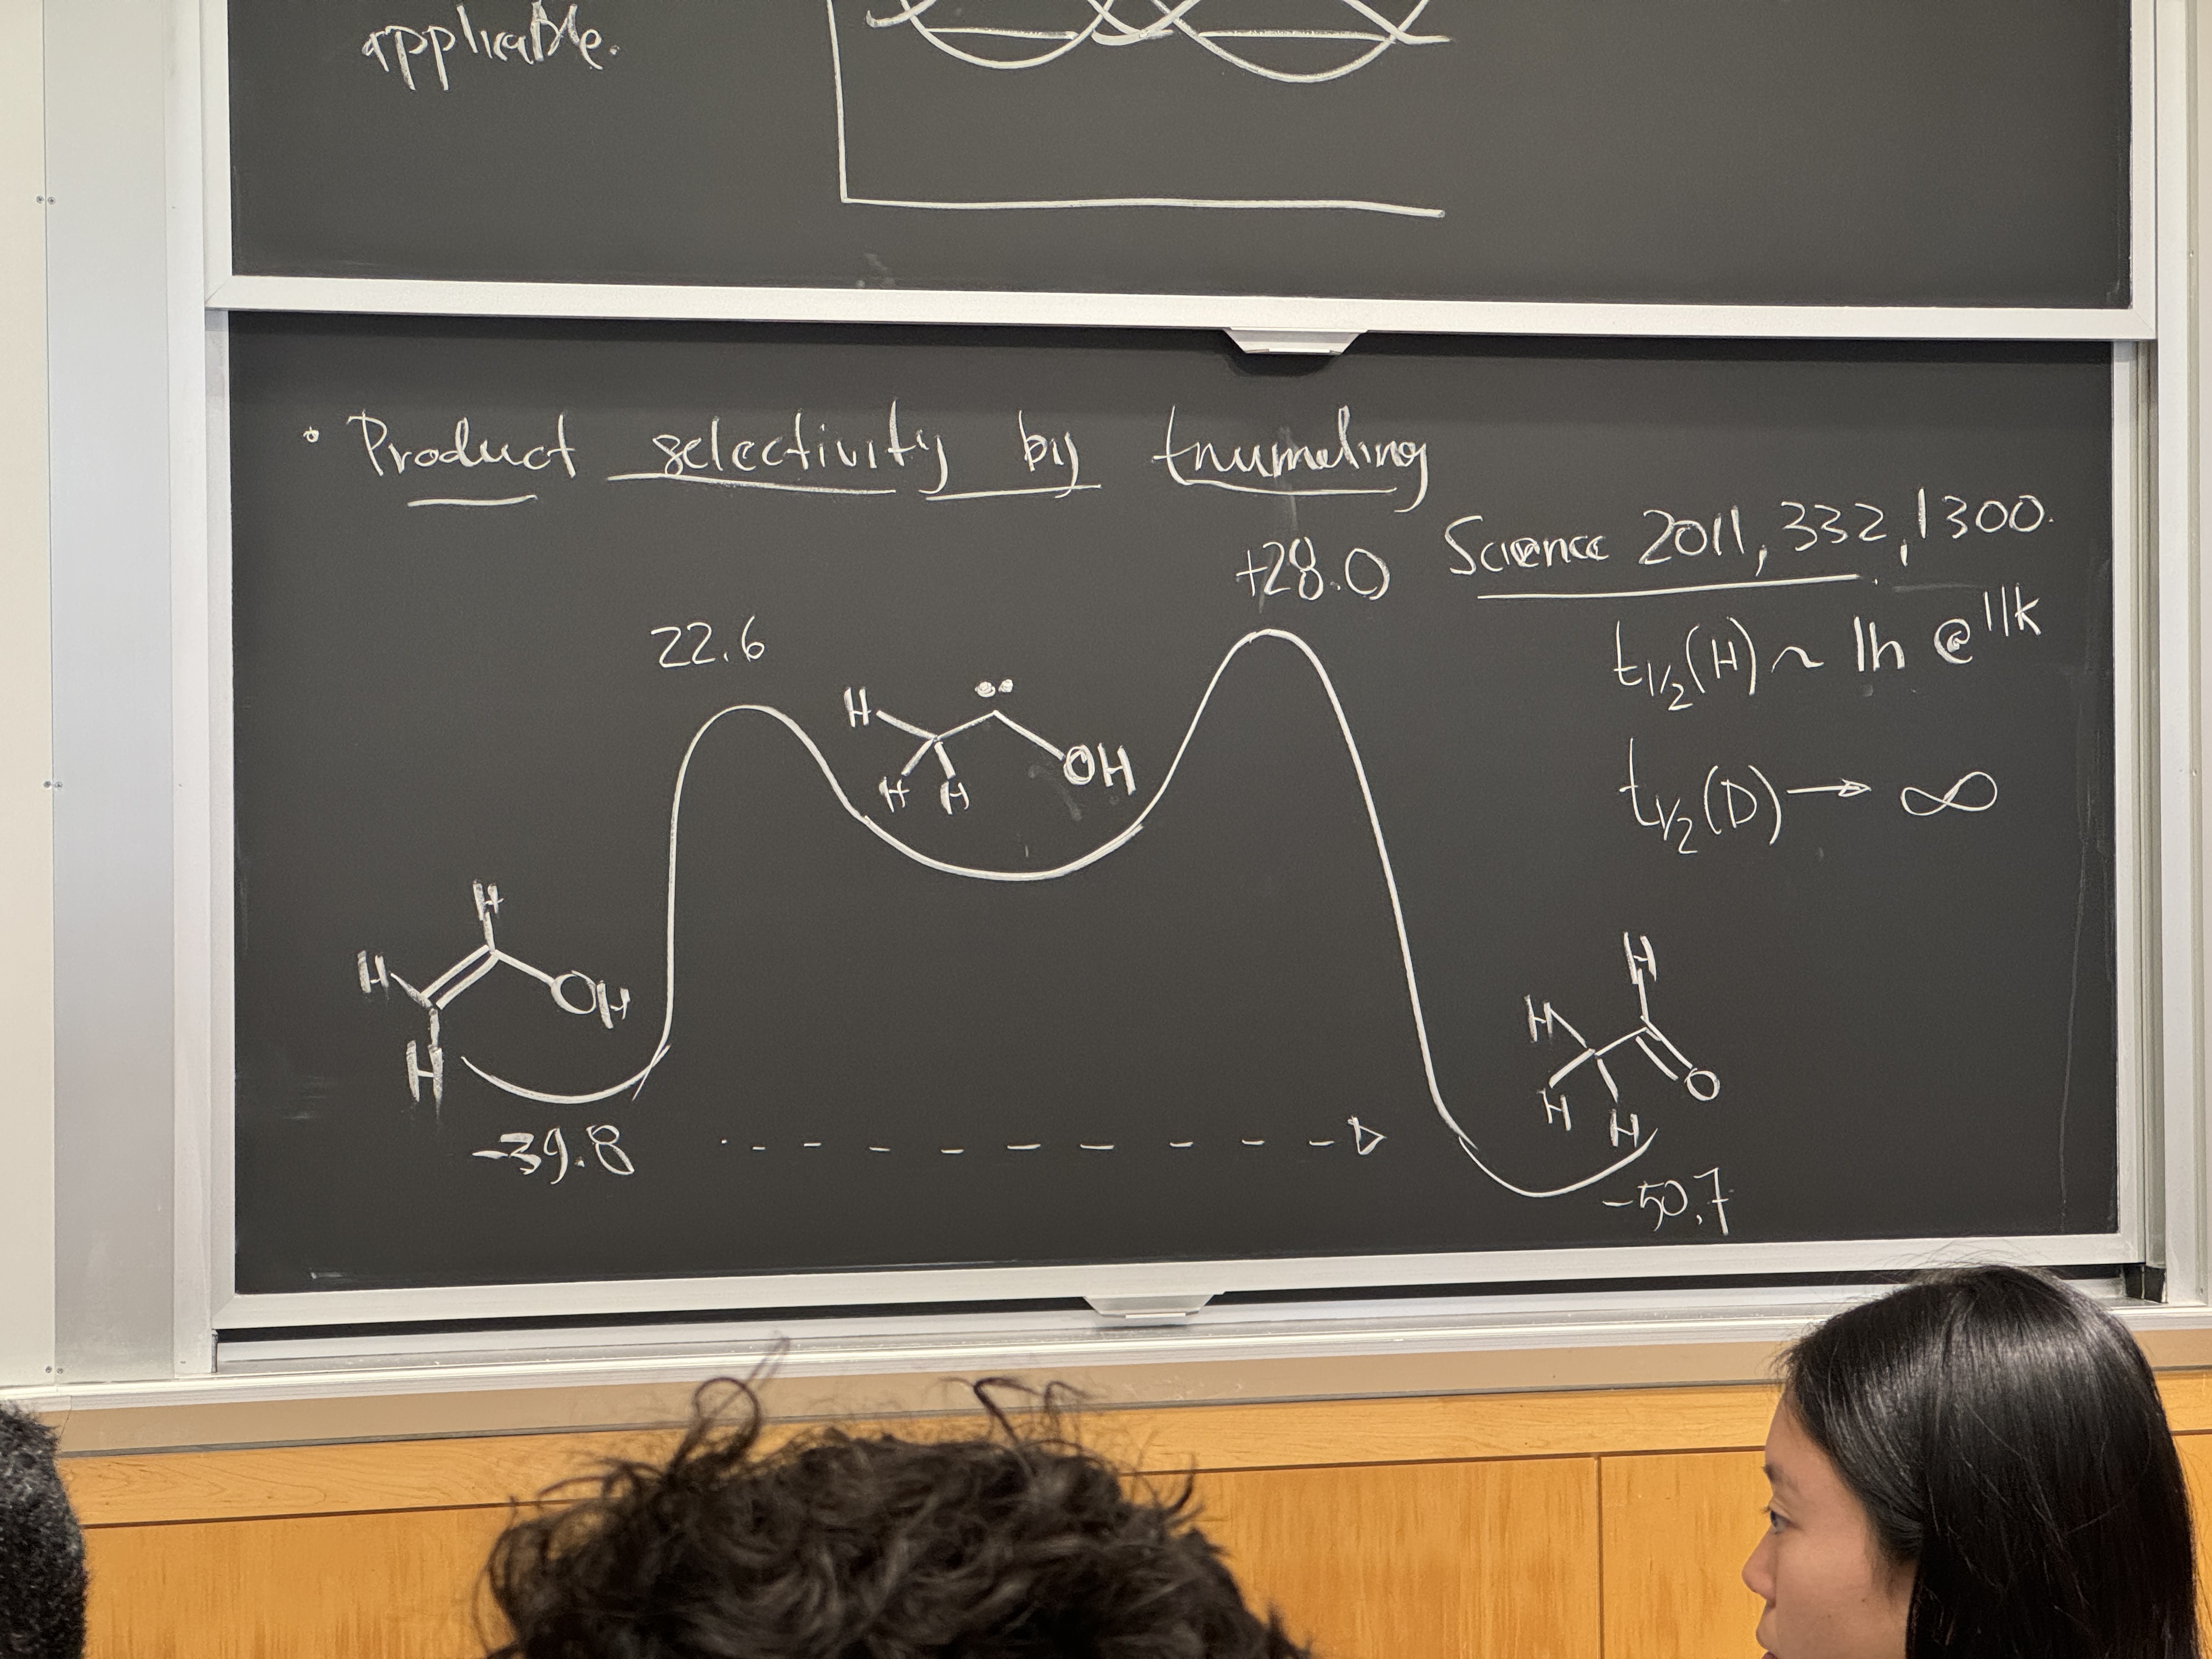 applicable.
• Product selectivity by tnumeling
Science 2011, 332, 1300.
+28.0
22.6
t1/2(H) ~ 1h @ 11K
H
••
OH
H H
t1/2(D) → ∞
H
H
OH
H
H
H
O
H
H
-39.8
-50.7